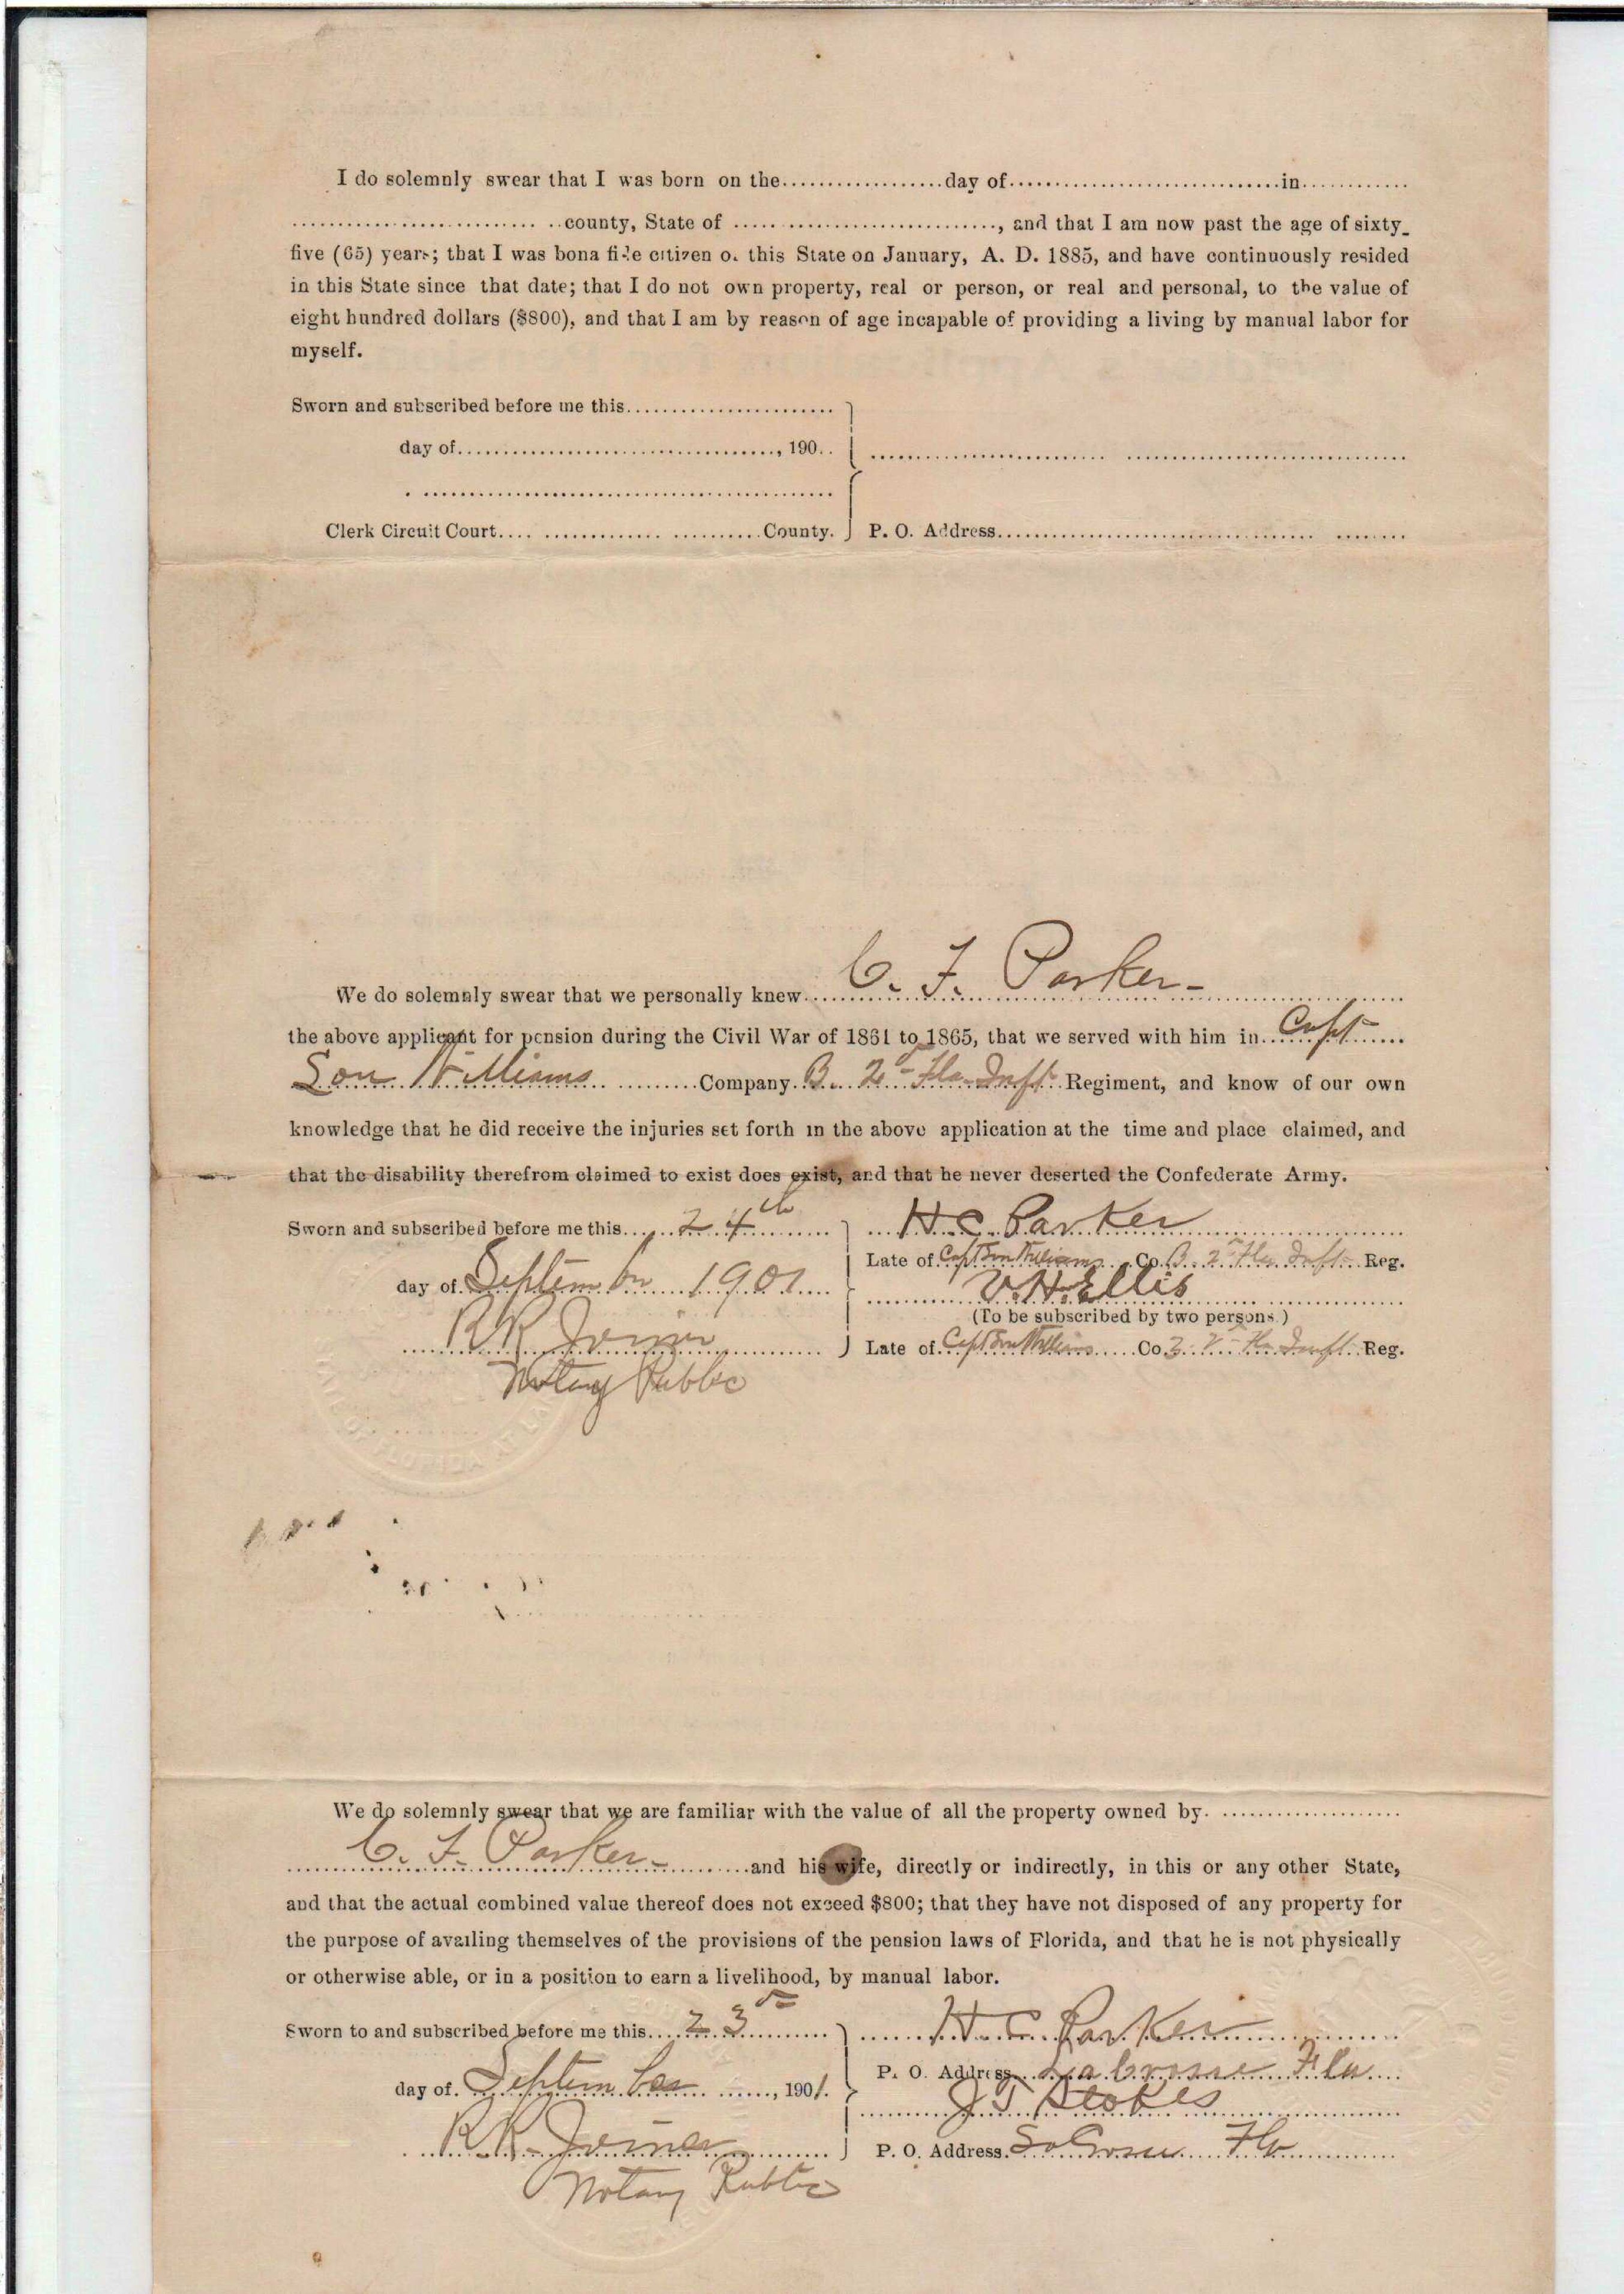 I do solemnly swear that I was born on the..................day of..............................in............
.............................county, State of ............................., and that I am now past the age of sixty-
five (65) years; that I was bona fide citizen of this State on January, A. D. 1885, and have continuously resided
in this State since that date; that I do not own property, real or person, or real and personal, to the value of
eight hundred dollars ($800), and that I am by reason of age incapable of providing a living by manual labor for
myself.
Sworn and subscribed before me this.......................
day of..................................., 190..
Clerk Circuit Court.............................County. P. O. Address.............................................
We do solemnly swear that we personally knew C. F. Parker-
the above applicant for pension during the Civil War of 1861 to 1865, that we served with him in Capt
Son Williams Company B. 2d Fla Inft Regiment, and know of our own
knowledge that he did receive the injuries set forth in the above application at the time and place claimed, and
that the disability therefrom claimed to exist does exist, and that he never deserted the Confederate Army.
Sworn and subscribed before me this 24th H C Parker
Late of Capt Son Williams Co B 2 Fla Inft Reg.
day of September 1901
V. H. Ellis
(To be subscribed by two persons.)
R R Joiner
Late of Capt Son Williams Co Fla Inft Reg.
Notary Public
OF FLORIDA AT LA
We do solemnly swear that we are familiar with the value of all the property owned by. ....................
C. F. Parker- and his wife, directly or indirectly, in this or any other State,
and that the actual combined value thereof does not exceed $800; that they have not disposed of any property for
the purpose of availing themselves of the provisions of the pension laws of Florida, and that he is not physically
or otherwise able, or in a position to earn a livelihood, by manual labor.
Sworn to and subscribed before me this 23 H. C. Parker
P. O. Address LaCrosse Fla
day of September, 1901.
J T Stokes
R R Joiner P. O. Address. LaCrosse Fla
Notary Public